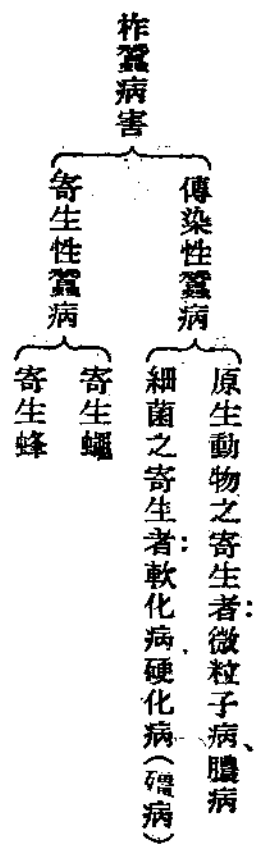 柞蠶病害
傳染性蠶病
原生動物之寄生者:微粒子病、膿病
細菌之寄生者:軟化病硬化病(殭病)
寄生性蠶病
寄生蠅
寄生蜂